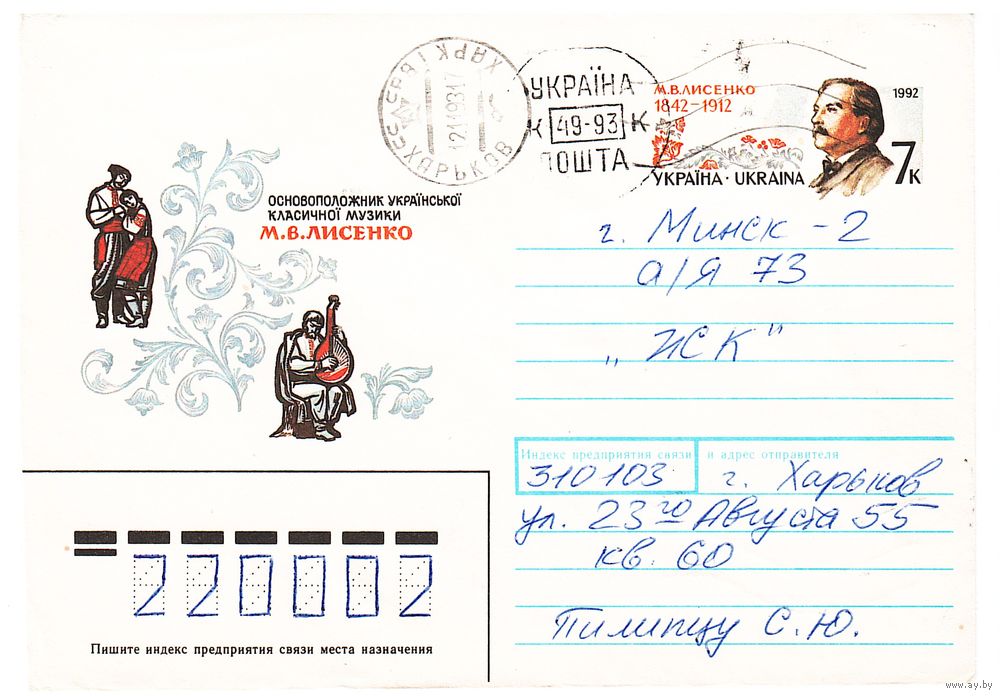 ХАРКІВ
ХАРЬКОВ
УКРАЇНА
К 49-93 К
ПОШТА
М.В.ЛИСЕНКО
1842-1912
1992
УКРАЇНА · UKRAINA
7к
ОСНОВОПОЛОЖНИК УКРАЇНСЬКОЇ
КЛАСИЧНОЇ МУЗИКИ
М.В.ЛИСЕНКО
г. Минск - 2
а/я 73
„ИСК"
Индекс предприятия связи и адрес отправителя
310103 г. Харьков
ул. 23го Августа 55
кв. 60
Пилипцу С.Ю.
220002
Пишите индекс предприятия связи места назначения
www.ay.by